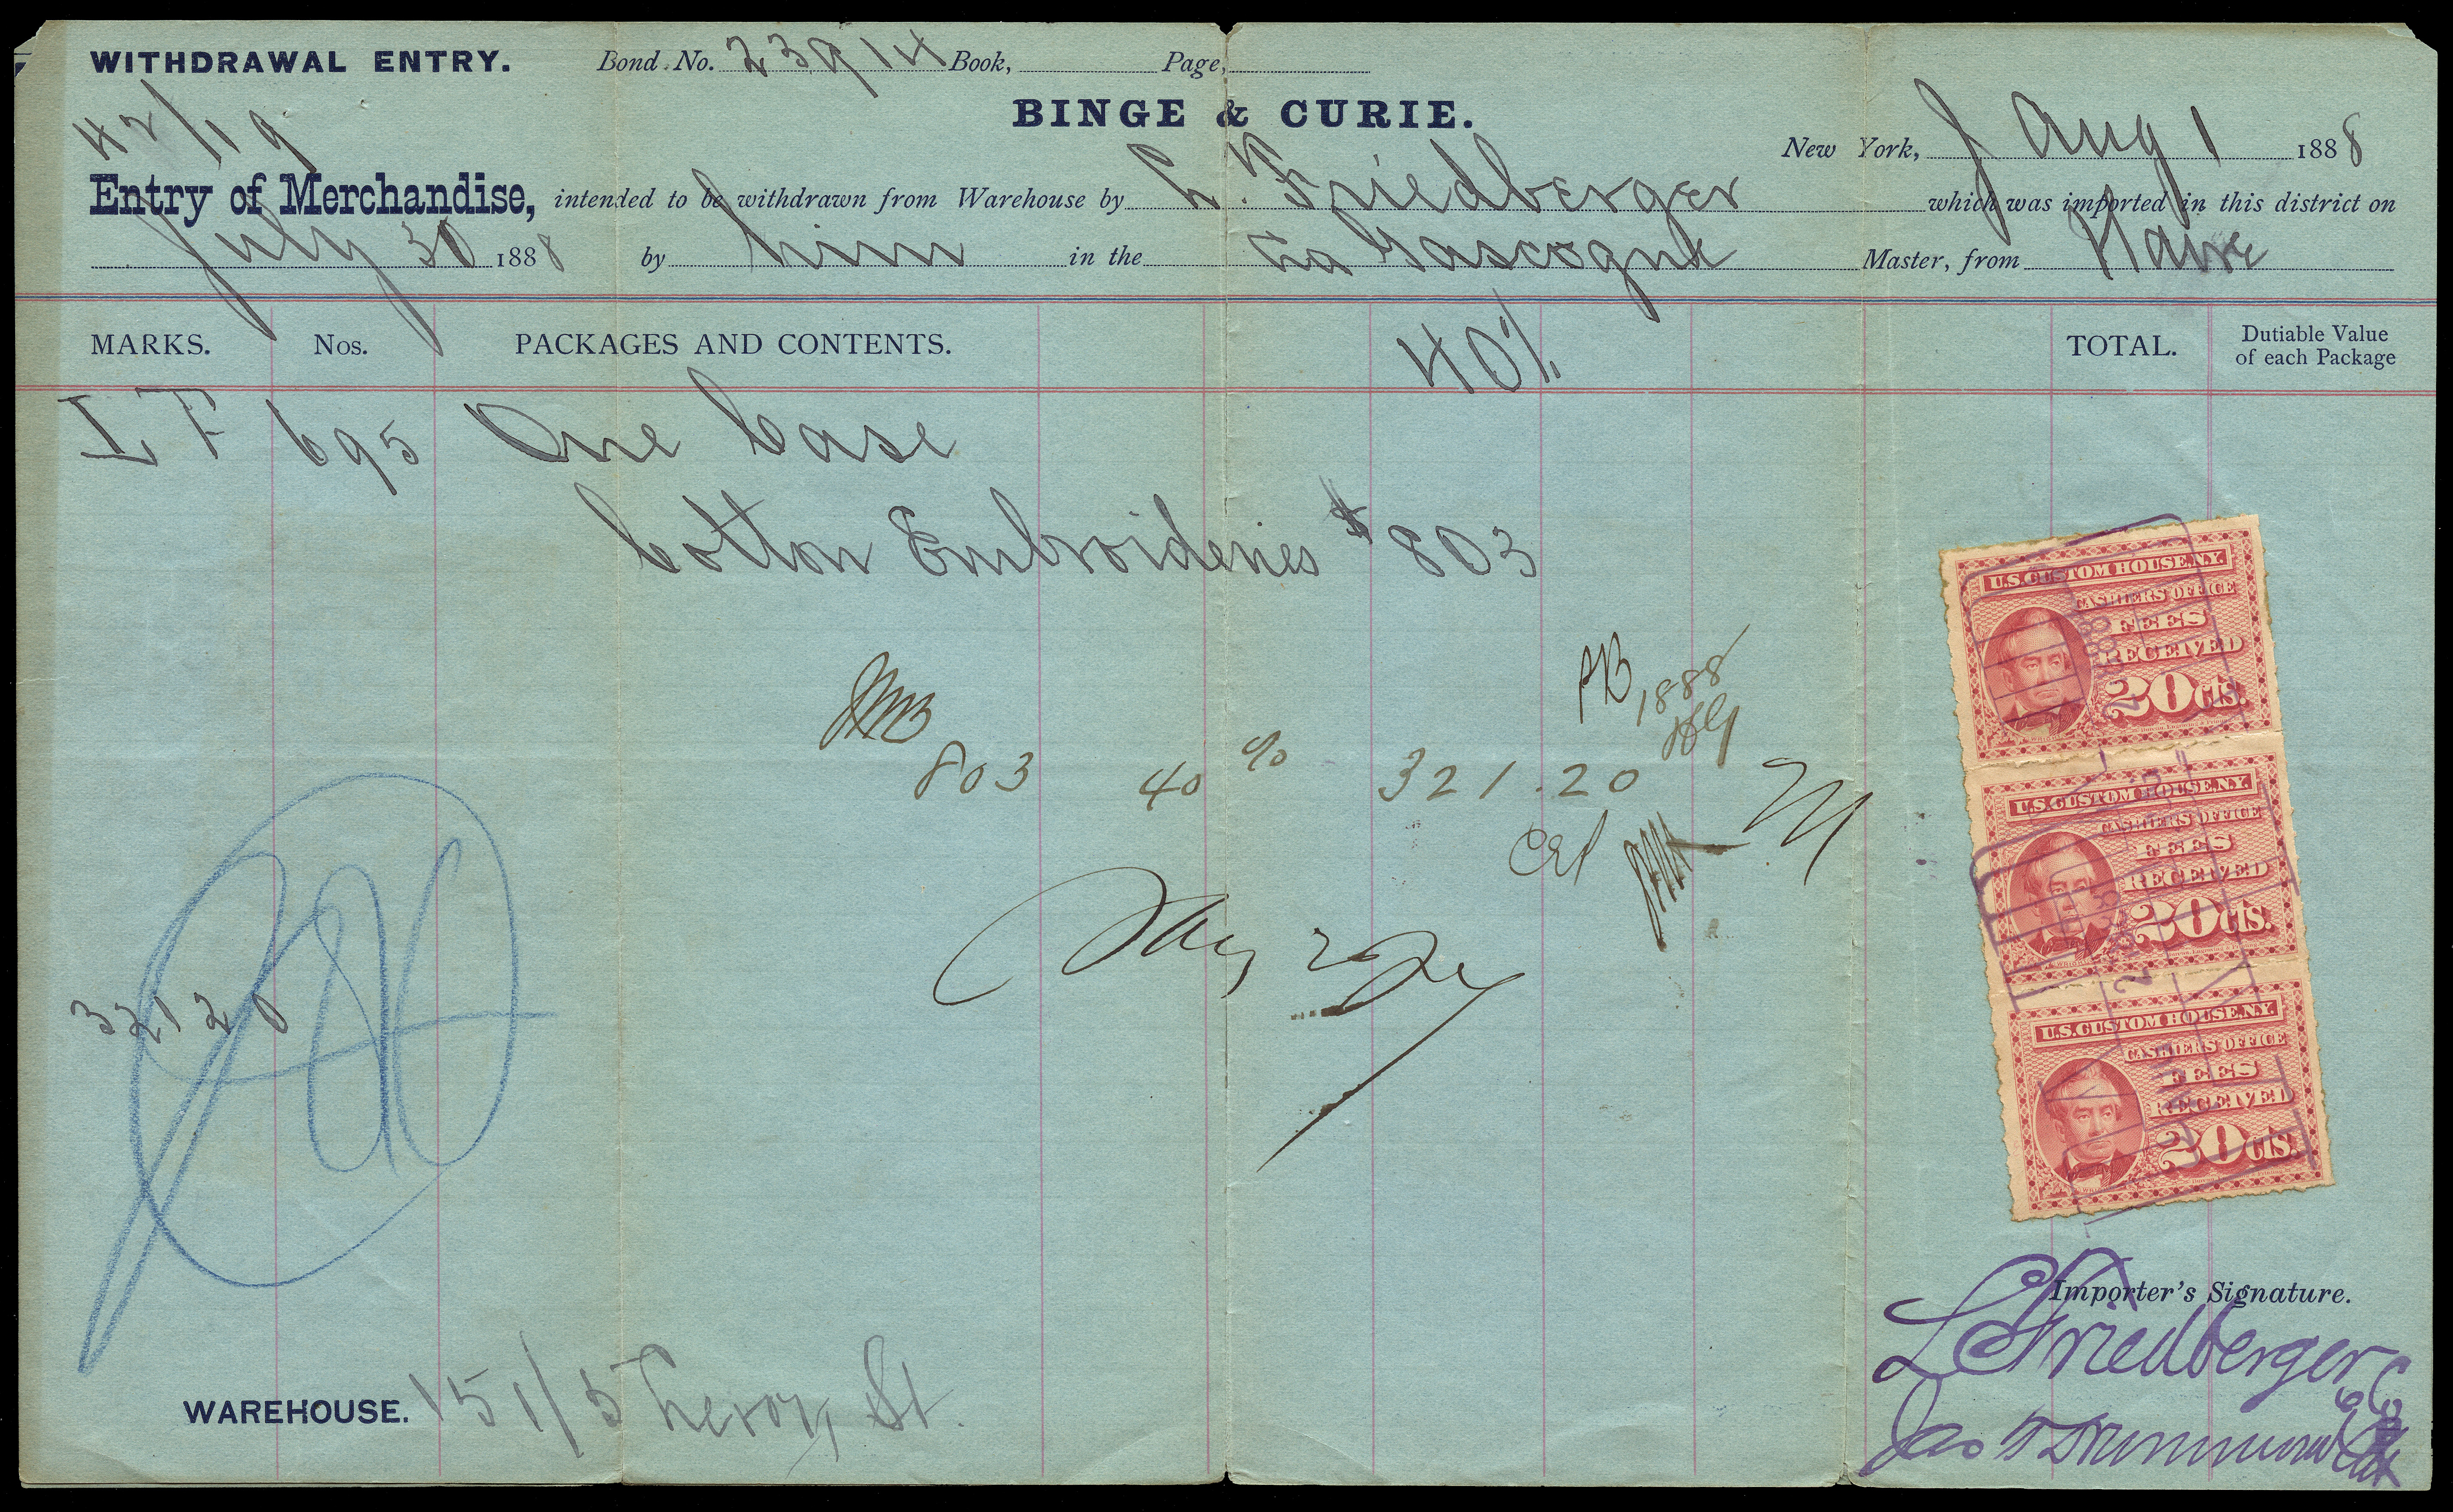 WITHDRAWAL ENTRY. Bond No. 23914 Book, Page,
BINGE & CURIE.
42/19
New York, Aug 1 1888
Entry of Merchandise, intended to be withdrawn from Warehouse by L. Friedberger which was imported in this district on
July 30 1888 by him in the La Gascogne Master, from Havre
MARKS. Nos. PACKAGES AND CONTENTS. 40% TOTAL. Dutiable Value of each Package
LF 695 One Case
Cotton Embroideries $803
1888
803 40% 321.20
32120
U.S. CUSTOM HOUSE, N.Y.
CASHIER'S OFFICE
FEES
RECEIVED
20 cts.
U.S. CUSTOM HOUSE, N.Y.
CASHIER'S OFFICE
FEES
RECEIVED
20 cts.
U.S. CUSTOM HOUSE, N.Y.
CASHIER'S OFFICE
FEES
RECEIVED
20 cts.
Importer's Signature.
L Friedberger
WAREHOUSE. 151/5 Leroy St.
Jas Drummond